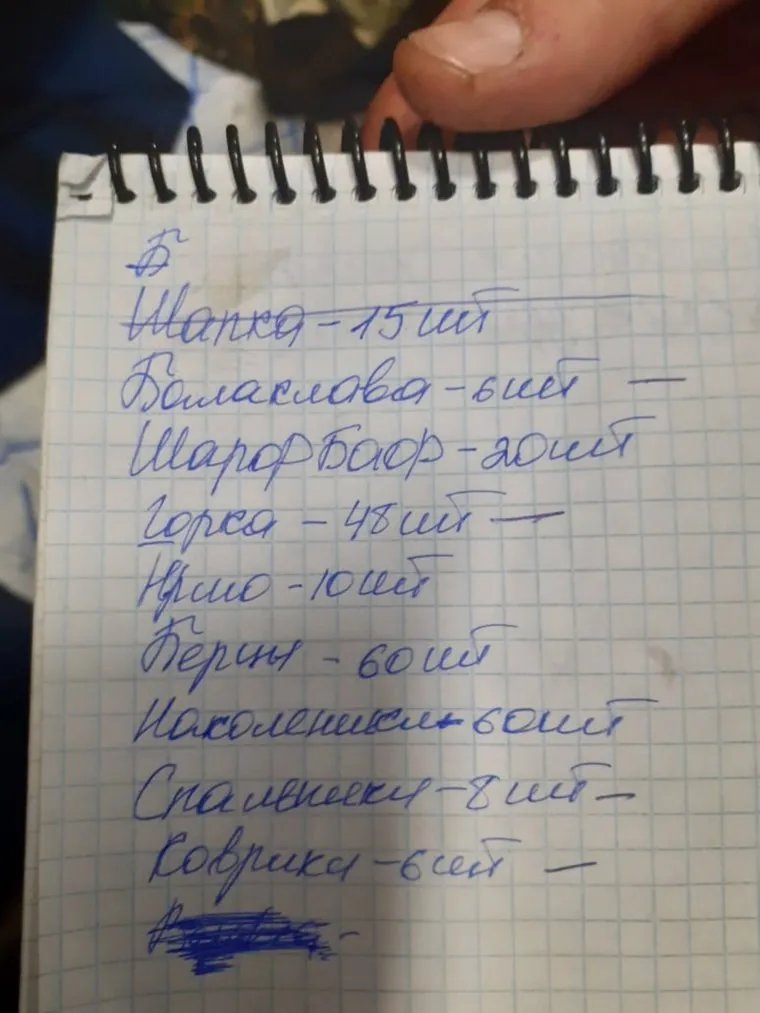 Б
Шапка - 15 шт
Балаклава - 6 шт —
Шарф Бафф - 20 шт
Горка - 48 шт —
- 10 шт
Берцы - 60 шт
Наколеники - 60 шт
Спальники - 8 шт -
Коврики - 6 шт —